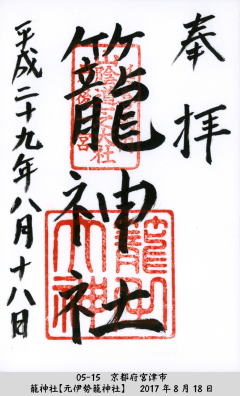 奉拝
籠神社
平成二十九年八月十八日
05-15 京都府宮津市
籠神社【元伊勢籠神社】 2017年8月18日